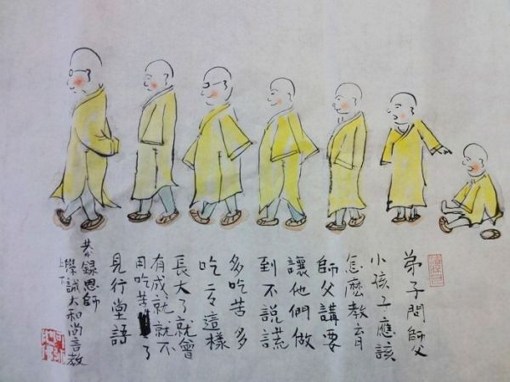 弟子問師父
小孩子應該
怎麽教育
師父講要
讓他們做
到不說謊
多吃苦多
吃亏這樣
長大了就會
有成就就不
用吃苦了
見行堂語
恭錄恩師
學誠大和尚言教